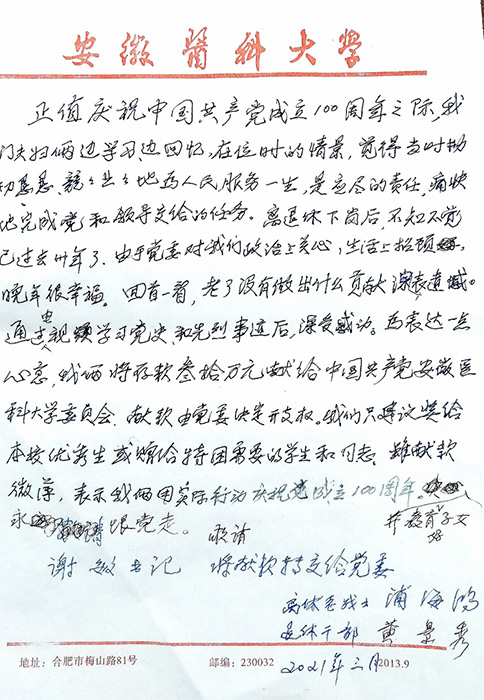 安徽医科大学
正值庆祝中国共产党成立100周年之际,我
们夫妇俩边学习边回忆,在位时的情景,觉得当时勤
勤恳恳、兢兢业业地为人民服务一生,是应尽的责任,痛快
地完成党和领导交给的任务。离退休下岗后,不知不觉
已过去卅年了。由于党委对我们政治上关心,生活上照顾,
晚年很幸福。回首一看,老了没有做出什么贡献深表遗憾。
通过电视学习党史和先烈事迹后,深受感动。为表达一点
心意,我俩将存款叁拾万元献给中国共产党安徽医
科大学委员会,献款由党委决定开支权。我们只建议奖给
本校优秀生或赠给特困需要的学生和同志。虽献款
微薄,表示我俩用实际行动庆祝党成立100周年。
并教育子女
永跟党走。 敬请
谢 书记 将献款转交给党委
离休老战士 浦海鸿
退休干部 黄景秀
2021年三月
地址:合肥市梅山路81号 邮编:230032 2013.9